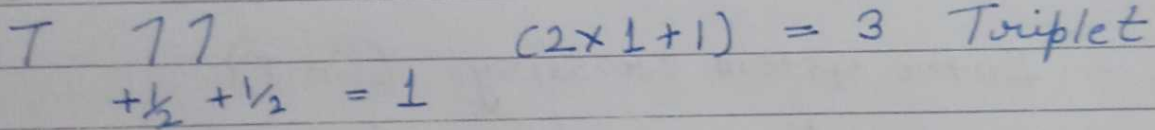 T 11 (2×1+1) = 3 Triplet
+½ +½ = 1